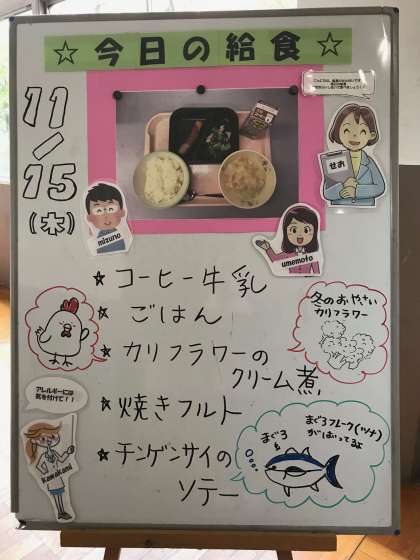 ☆今日の給食☆
11/15
(木)
せお
mizuno
umemoto
★コーヒー牛乳
★ごはん
★カリフラワーの
クリーム煮
★焼きフルト
★チンゲンサイの
ソテー
冬のおやさい
カリフラワー
アレルギーには
気を付けて!!
KawaKami
まぐろ
まぐろフレーク(ツナ)
がはいってるよ